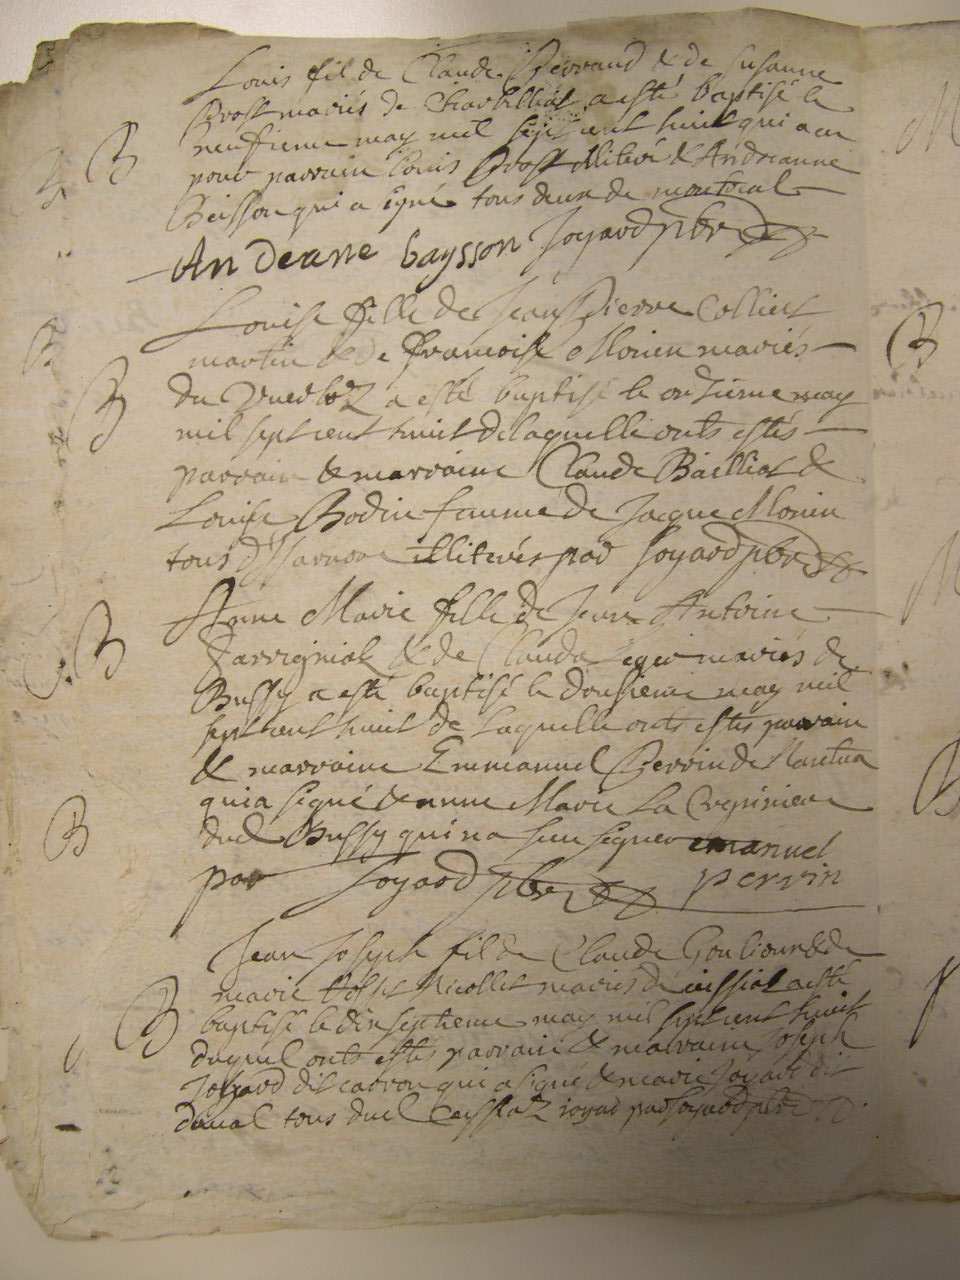 Louis fil de Claude Perraud & de Susanne
Brost mariés de Charbilliat a esté baptisé le
neufieme may mil sept cent huit qui a eu
pour parrain Louis Brost illiteré & Andreanne
Beisson qui a signé tous deux de montreal
An deane baysson Joyard pbre
B
Louise fille de Jean Pierre Colliet
martin & de francoise Monin mariés
du a esté baptisé le onzieme may
mil sept cent huit de laquelle onts estés
parrain & marraine Claude Bailliat &
Louise Bodin femme de Jacque Monin
tous illiterés par Joyard pbre
B
Anne Marie fille de Jean Antoine
& de Clauda mariés de
Bussy a esté baptisé le dousieme may mil
sept cent huit de laquelle onts estés parrain
& marraine Emmanuel Perrin de Nantua
qui a signé & anne Marie La
dud Bussy qui na seu signer emanuel
par Joyard pbre perrin
B
B
Jean Joseph fil de Claude & de
marie Nicollet mariés de ceissiat a esté
baptisé le dixseptieme may mil sept cent huit
duquel onts estés parrain & marraine Joseph
Joyard dit carron qui a signé & marie Joyard dit
duval tous dud Ceissiaz ioyard par Joyard pbre
B